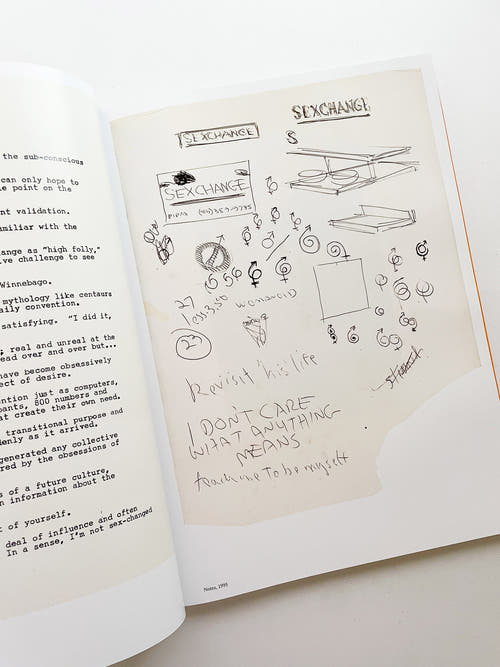 the sub-conscious
can only hope to
e point on the
nt validation.
miliar with the
ange as "high folly,"
ive challenge to see
Winnebago.
mythology like centaurs
aily convention.
satisfying. "I did it,
, real and unreal at the
ead over and over but...
have become obsessively
ect of desire.
ention just as computers,
pants, 800 numbers and
at create their own need.
transitional purpose and
denly as it arrived.
generated any collective
red by the obsessions of
s of a future culture,
n information about the
t of yourself.
deal of influence and often
In a sense, I'm not sex-changed
SEXCHANGE
SEXCHANGE
S
SEXCHANGE
27
23
Revisit this life
I DON'T CARE
WHAT ANYTHING
MEANS
teach me to be myself
Notes, 1995